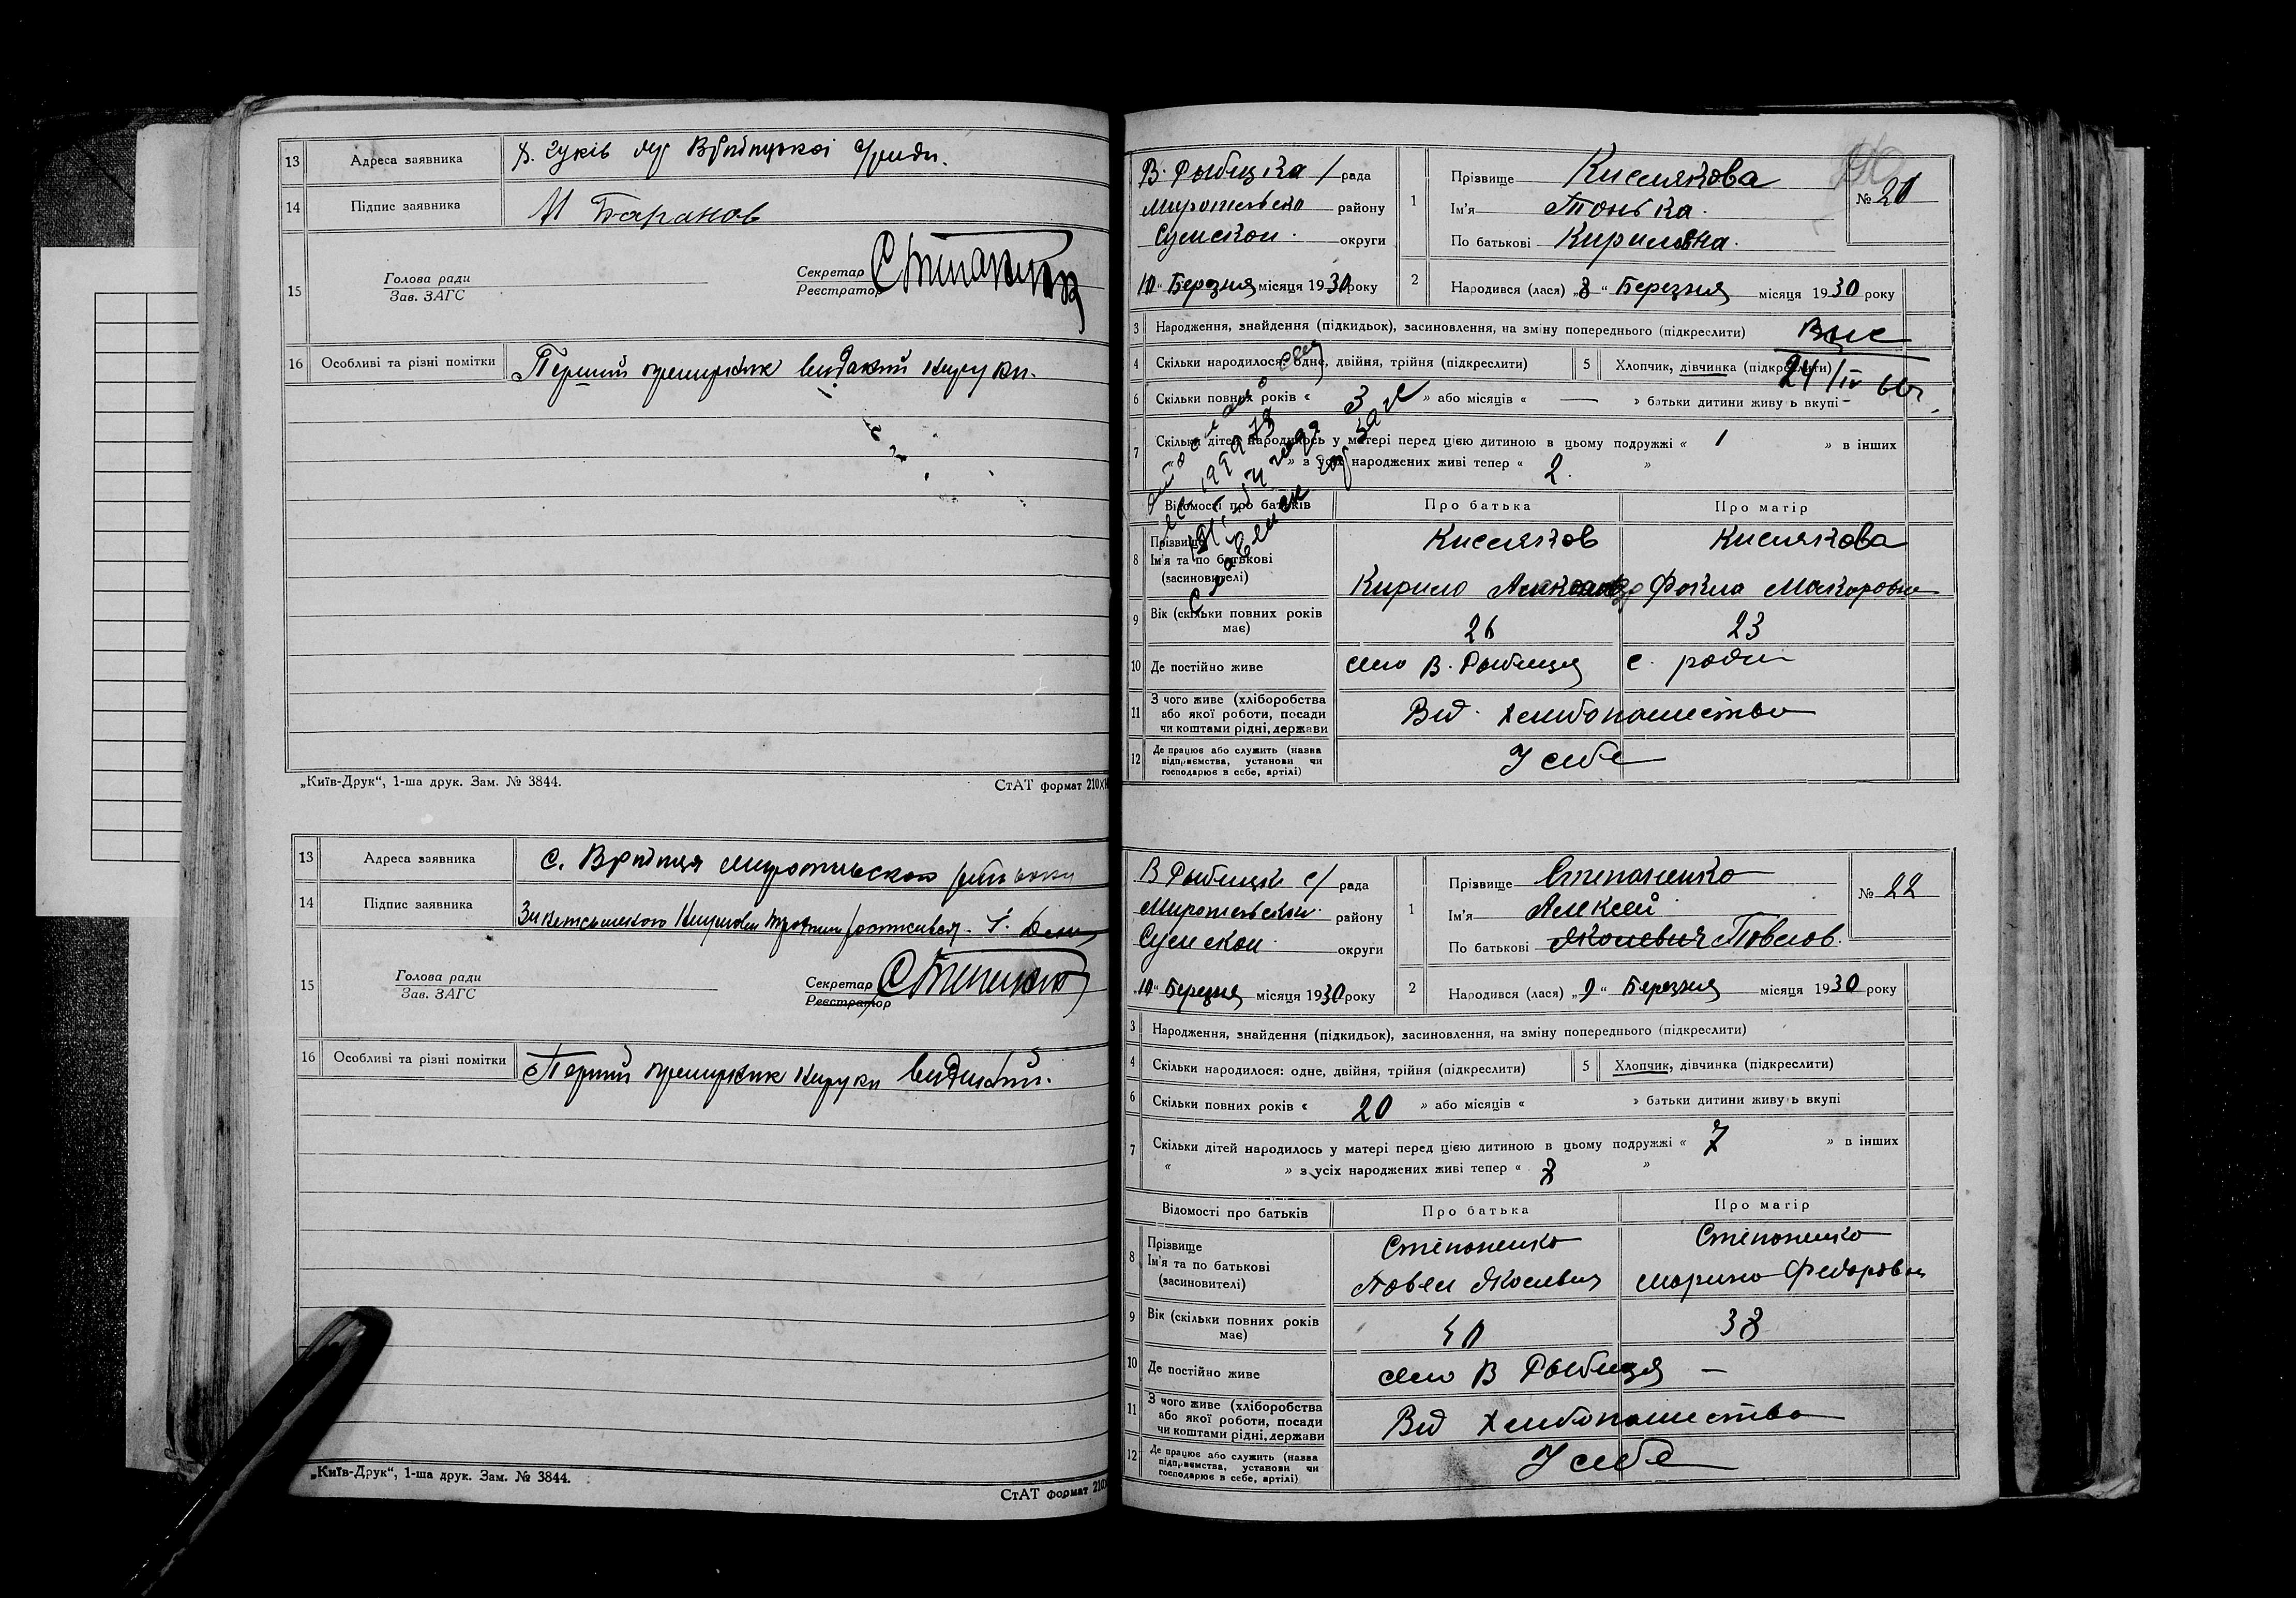 13 Адреса заявника
14 Підпис заявника И Баранов
15 Голова ради Секретар
Зав. ЗАГС Реєстратор
16 Особливі та різні помітки Перший примірник виданий на руки.
„Київ-Друк“, 1-ша друк. Зам. № 3844. СтАТ формат 210
13 Адреса заявника с.
14 Підпис заявника
15 Голова ради Секретар
Зав. ЗАГС Реєстратор
16 Особливі та різні помітки Перший примірник на руки виданий.
„Київ-Друк“, 1-ша друк. Зам. № 3844.
СтАТ формат 210
В. Рыбицка / рада
района району
Сумской округи
„10“ Березня місяця 1930 року
1 Прізвище Кислякова
Ім'я Тонька.
По батькові Кириловна.
№ 21
2 Народився (лася) „8“ Березня місяця 1930 року
3 Народження, знайдення (підкидьок), засиновлення, на зміну попереднього (підкреслити)
4 Скільки народилося: одне, двійня, трійня (підкреслити) 5 Хлопчик, дівчинка (підкреслити)
24/IV 60г.
6 Скільки повних років « 3 » або місяців « — » батьки дитини живуть вкупі
7 Скільки дітей народилось у матері перед цією дитиною в цьому подружжі « 1 » в інших
» з усіх народжених живі тепер « 2. »
Відомості про батьків Про батька Про матір
8 Прізвище Кисляков Кислякова
Ім'я та по батькові
(засновителі) Кирило Фекла Макаровна
9 Вік (скільки повних років має) 26 23
10 Де постійно живе село В. Рыбиця с.
11 З чого живе (хліборобства
або якої роботи, посади
чи коштами рідні, держави Від хлебопашества
12 Де працює або служить (назва
підприємства, установи чи
господарює в себе, артілі) У себе
В Рыбицк с/ рада
Миропольской району
Сумской округи
„10“ Березня місяця 1930 року
1 Прізвище Степаненко
Ім'я Алексей
По батькові Яковлевич Павлов.
№ 22
2 Народився (лася) „9“ Березня місяця 1930 року
3 Народження, знайдення (підкидьок), засиновлення, на зміну попереднього (підкреслити)
4 Скільки народилося: одне, двійня, трійня (підкреслити) 5 Хлопчик, дівчинка (підкреслити)
6 Скільки повних років « 20 » або місяців « » батьки дитини живуть вкупі
7 Скільки дітей народилось у матері перед цією дитиною в цьому подружжі « 7 » в інших
« » з усіх народжених живі тепер « 8 »
Відомості про батьків Про батька Про матір
8 Прізвище Степаненко Степаненко
Ім'я та по батькові
(засновителі) Павел Яковлевич Марина Федоровна
9 Вік (скільки повних років має) 40 38
10 Де постійно живе село В Рыбиця —
11 З чого живе (хліборобства
або якої роботи, посади
чи коштами рідні, держави Від хлебопашества
12 Де працює або служить (назва
підприємства, установи чи
господарює в себе, артілі) У себе